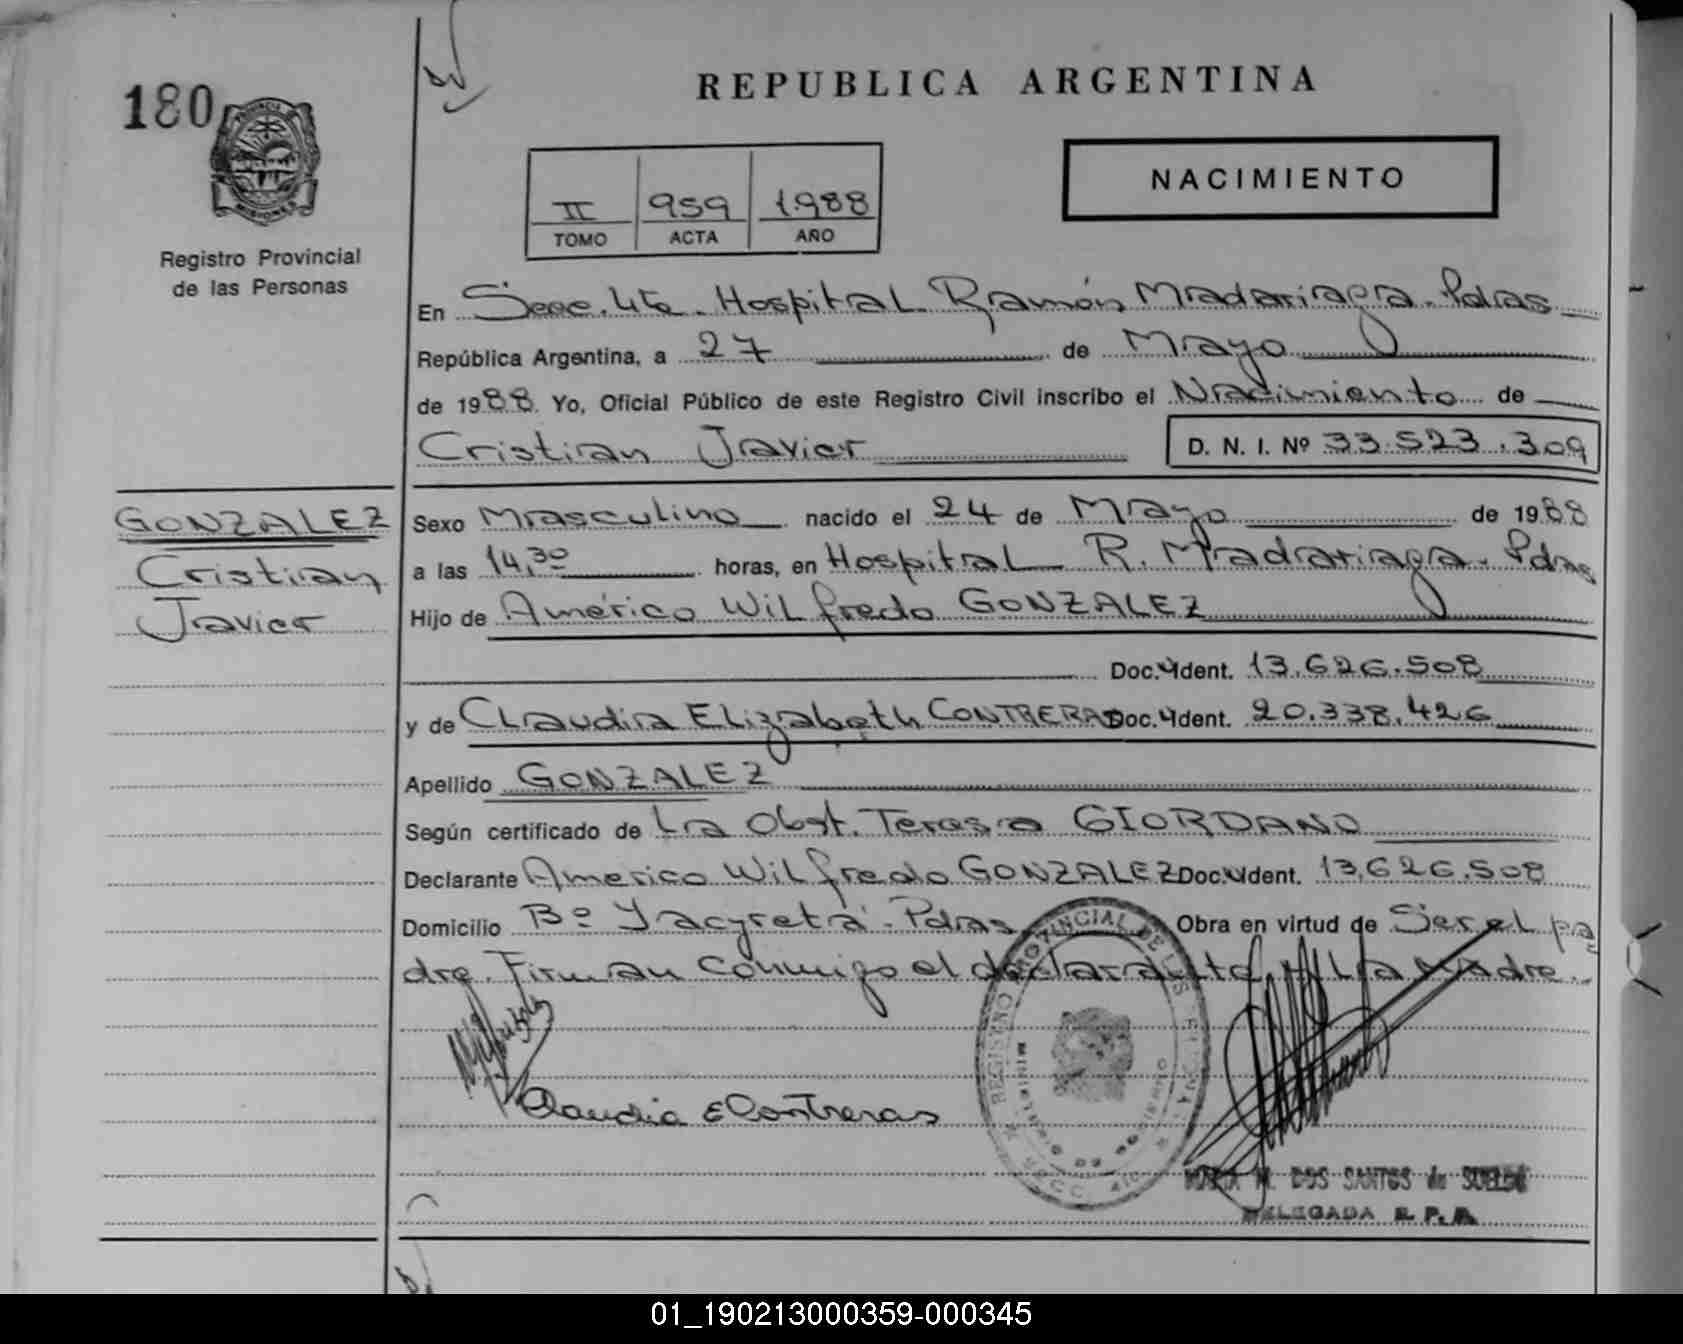 180
REPUBLICA ARGENTINA
PROVINCIA DE
MISIONES
II 959 1988
TOMO ACTA AÑO
NACIMIENTO
Registro Provincial
de las Personas
En Secc. 4ta. Hospital Ramón Madariaga. Pdas
República Argentina, a 27 de Mayo
de 1988. Yo, Oficial Público de este Registro Civil inscribo el Nacimiento de
Cristian Javier D. N. I. Nº 33.523.309
GONZALEZ
Cristian
Javier
Sexo Masculino nacido el 24 de Mayo de 1988
a las 14,30 horas, en Hospital R. Madariaga. Pdas
Hijo de Américo Wilfredo GONZALEZ
Doc. Ident. 13.626.508
y de Claudia Elizabeth CONTRERAS Doc. Ident. 20.338.426
Apellido GONZALEZ
Según certificado de La Obst. Teresa GIORDANO
Declarante Americo Wilfredo GONZALEZ Doc. Ident. 13.626.508
Domicilio Bº Yacyretá. Pdas Obra en virtud de Ser el pa
dre. Firman conmigo el declarante y La Madre.
REGISTRO PROVINCIAL DE LAS PERSONAS
MINISTERIO DE GOBIERNO
Claudia E Contreras
MARIA M. DOS SANTOS de
DELEGADA R. P. P.
01_190213000359-000345